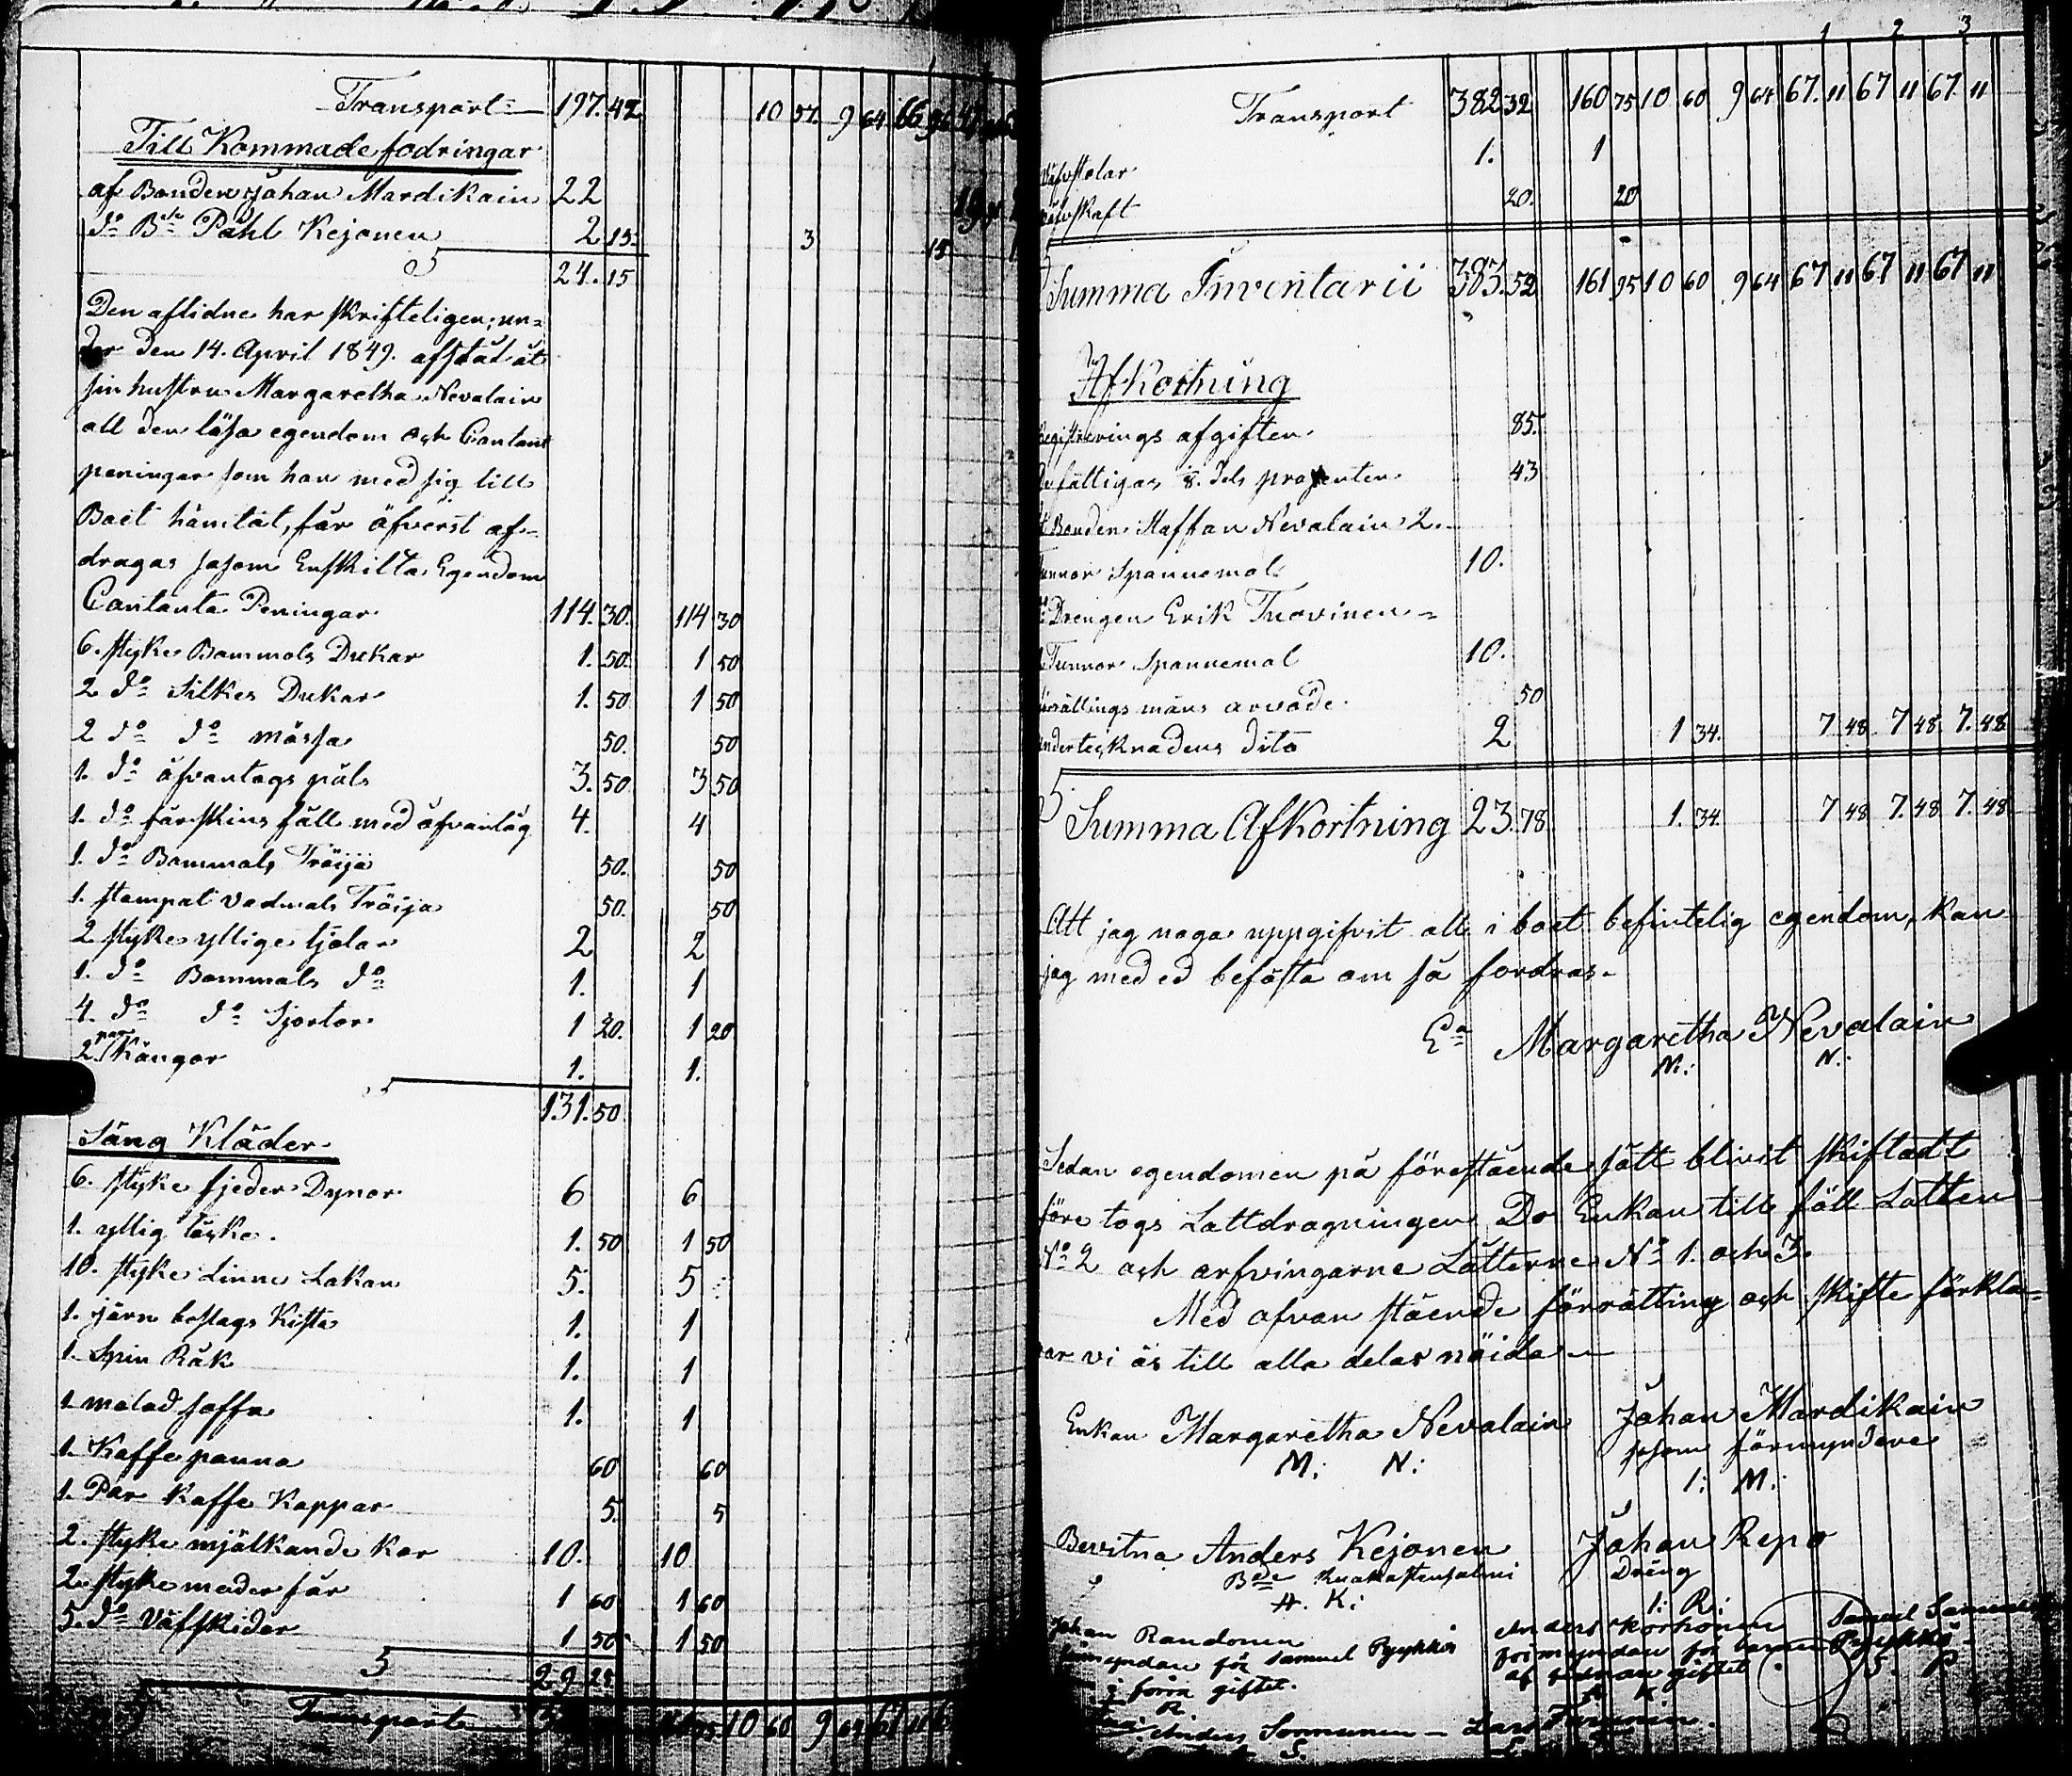 Transport 197. 42 10 57. 9 64 66 96
Till Kommade fodringar
af Bonden Johan Mardikain 22
do Bde Påhl Kejonen 2. 15. 3 15
S 24. 15
Den aflidne har skrifteligen, un=
der den 14. April 1849. afstått åt
sin hustru Margaretha Nevalain
all den lösa egendom och Contant
peningar som han med sig till
Boet hämtat, får öfverst af=
dragas såsom Enskilta Egendom
Contanta Peningar 114. 30. 114 30
6. styke Bommols Dukar 1. 50. 1 50
2 do Silkes Dukar 1. 50 1 50
2 do do mössa 50. 50
1. do ofvantags päls 3. 50 3 50
1. do fårskins fäll med ofvantag 4. 4
1. do Bommols Tröija 50. 50
1. stampat vadmals Tröija 50. 50
2 styke yllige tjolar 2 2
1. do Bommols do 1. 1
4. do do Sjortor 1 20. 1 20
2. par Kängor 1. 1.
131. 50
Säng Kläder
6. styke fjeder Dynor 6 6
1. yllig täcke. 1. 50 1 50
10. styke Linne Lakan 5. 5
1. järn beslags Kista 1. 1
1. Spin Råk 1. 1
1 malad soffa 1. 1
1. Kaffe panna 60 60
1. Par Kaffe Koppar 5. 5
2. styke mjölkande Kor 10. 10
2. styke moder får 1 60 1 60
5. do Väfskidar 1 50 1 50
S 29 25
Transport 10 60 9 64 67 11
1 2 3
Transport 382 32 160 75 10 60 9 64 67. 11 67 11 67. 11
Väfstolar 1. 1
Väfskaft 20. 20
Summa Inventarii 383. 52 161 95 10 60 9 64 67 11 67 11 67 11
Afkortning
Registrerings afgiften 85.
De fattigas 8. dels procenten 43
Bonden Staffan Nevalain 2.
Tunnor Spannemål 10.
Drengen Erik Tuovinen =
Tunnor Spannemål 10.
Förrättings mäns arvode. 50
Undertecknadens dito 2 1 34. 7 48 7 48 7. 48
Summa Afkortning 23. 78 1. 34. 7 48 7. 48 7. 48
Att jag noga uppgifvit all i boet befintelig egendom, kan
jag med ed befästa om så fordras.
Ea Margaretha Nevalain
M: N:
Sedan egendomen på förestående sätt blivit skiftadt
före togs Lattdragningen, Do Enkan till föll Latten
No 2 och arfvingarne Latterne No 1. och 3.
Med ofvan stående förrätting och skifte förkla=
rar vi äs till alla delar nöida.
Enkan Margaretha Nevalain Johan Mardikain
såsom förmyndere
M: N: I: M:
Bevitna Anders Kejonen Johan Repo
Bde Dreng
A. K: I: R:
Johan Randonen Anders Korhonen Samuel
förmyndare för Samuel Pyykkös förmyndare för barnen Pyykkö
i förra giftet. af sednare giftet S. P
R. A K
Anders Sormunen Lars
S.